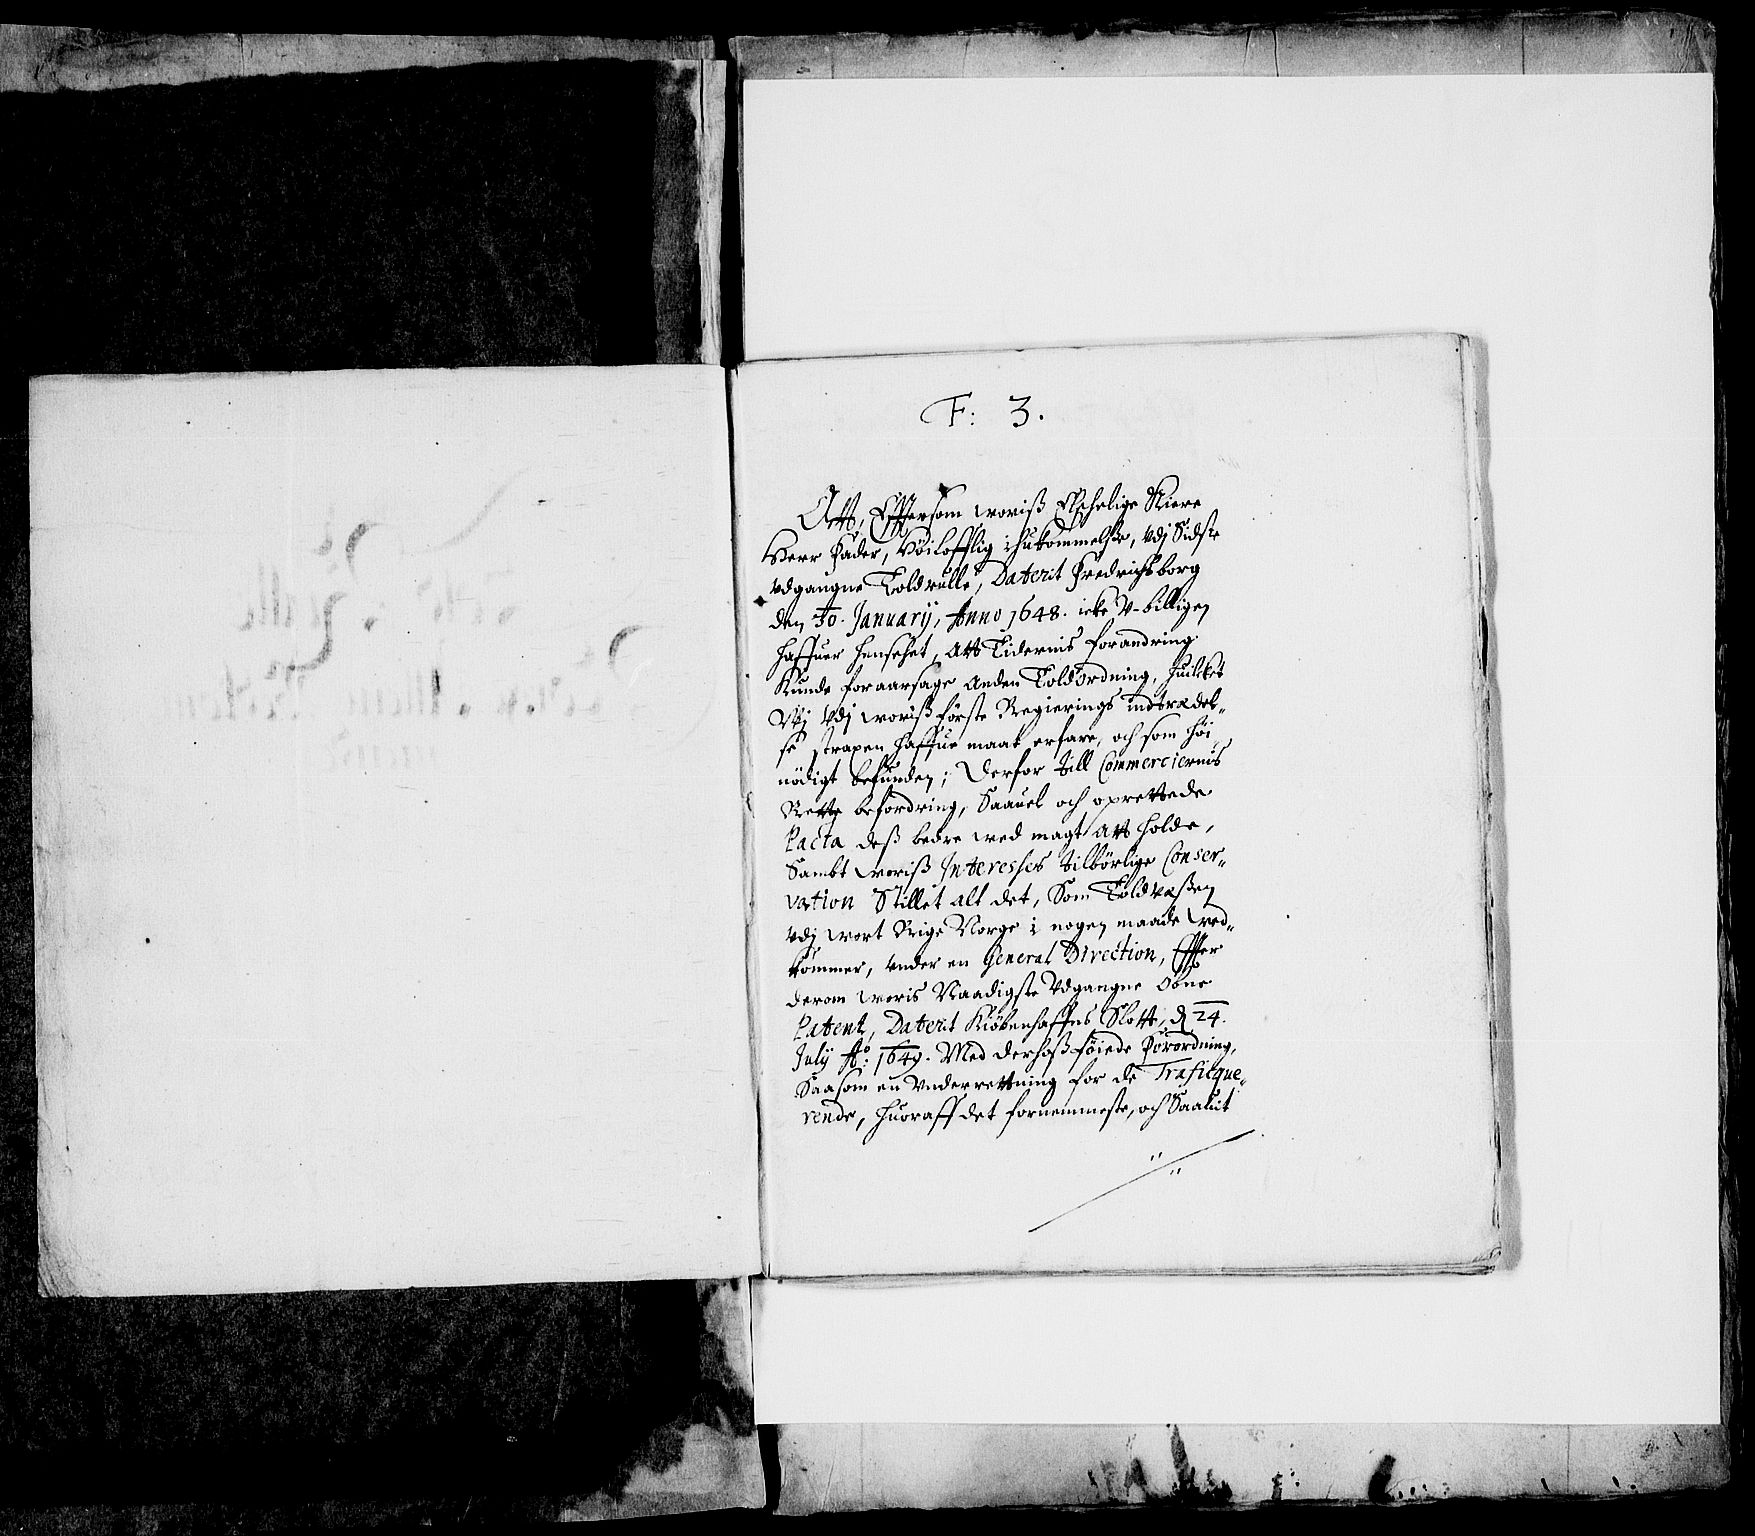 F: 3.
Att, Effterson woriß Elschelige Kiere
Herr Fader, Höiloflig ihukommelße, vdj Sidste
vdgangne Toldrulle, Daterit Fredrichsborg
den 30. Januarij, Anno 1648. icke V-billigen
haffuer henseehet, Att Tidernis forandring
Kunde foraarsage Anden Toldordning, huilcket
Wj vdj woriß förste Regierings indtrædel-
se straxen haffue maat erfare, och som höi
nödigt befunden; Derfor till Commerciernis
Rette befordring, Saauel och oprettede
Pacta deß bedre wed magt att holde,
Sambt woriß Interesses tilbörlige Conser-
vation Stillet alt det, Som Toldwæßen
vdj wort Rige Norge i nogen maade wed-
kommer, vnder en General Direction, Effter
derom woris Naadigste vdgangne Obne
Patent, Daterit Kiöbenhaffns Slott, d 24.
July Ao: 1649. Med derhoß föiede Forordning,
Saasom en Vnderrettning for de Trafique-
rende, huoraff det fornemmeste, och Saauit